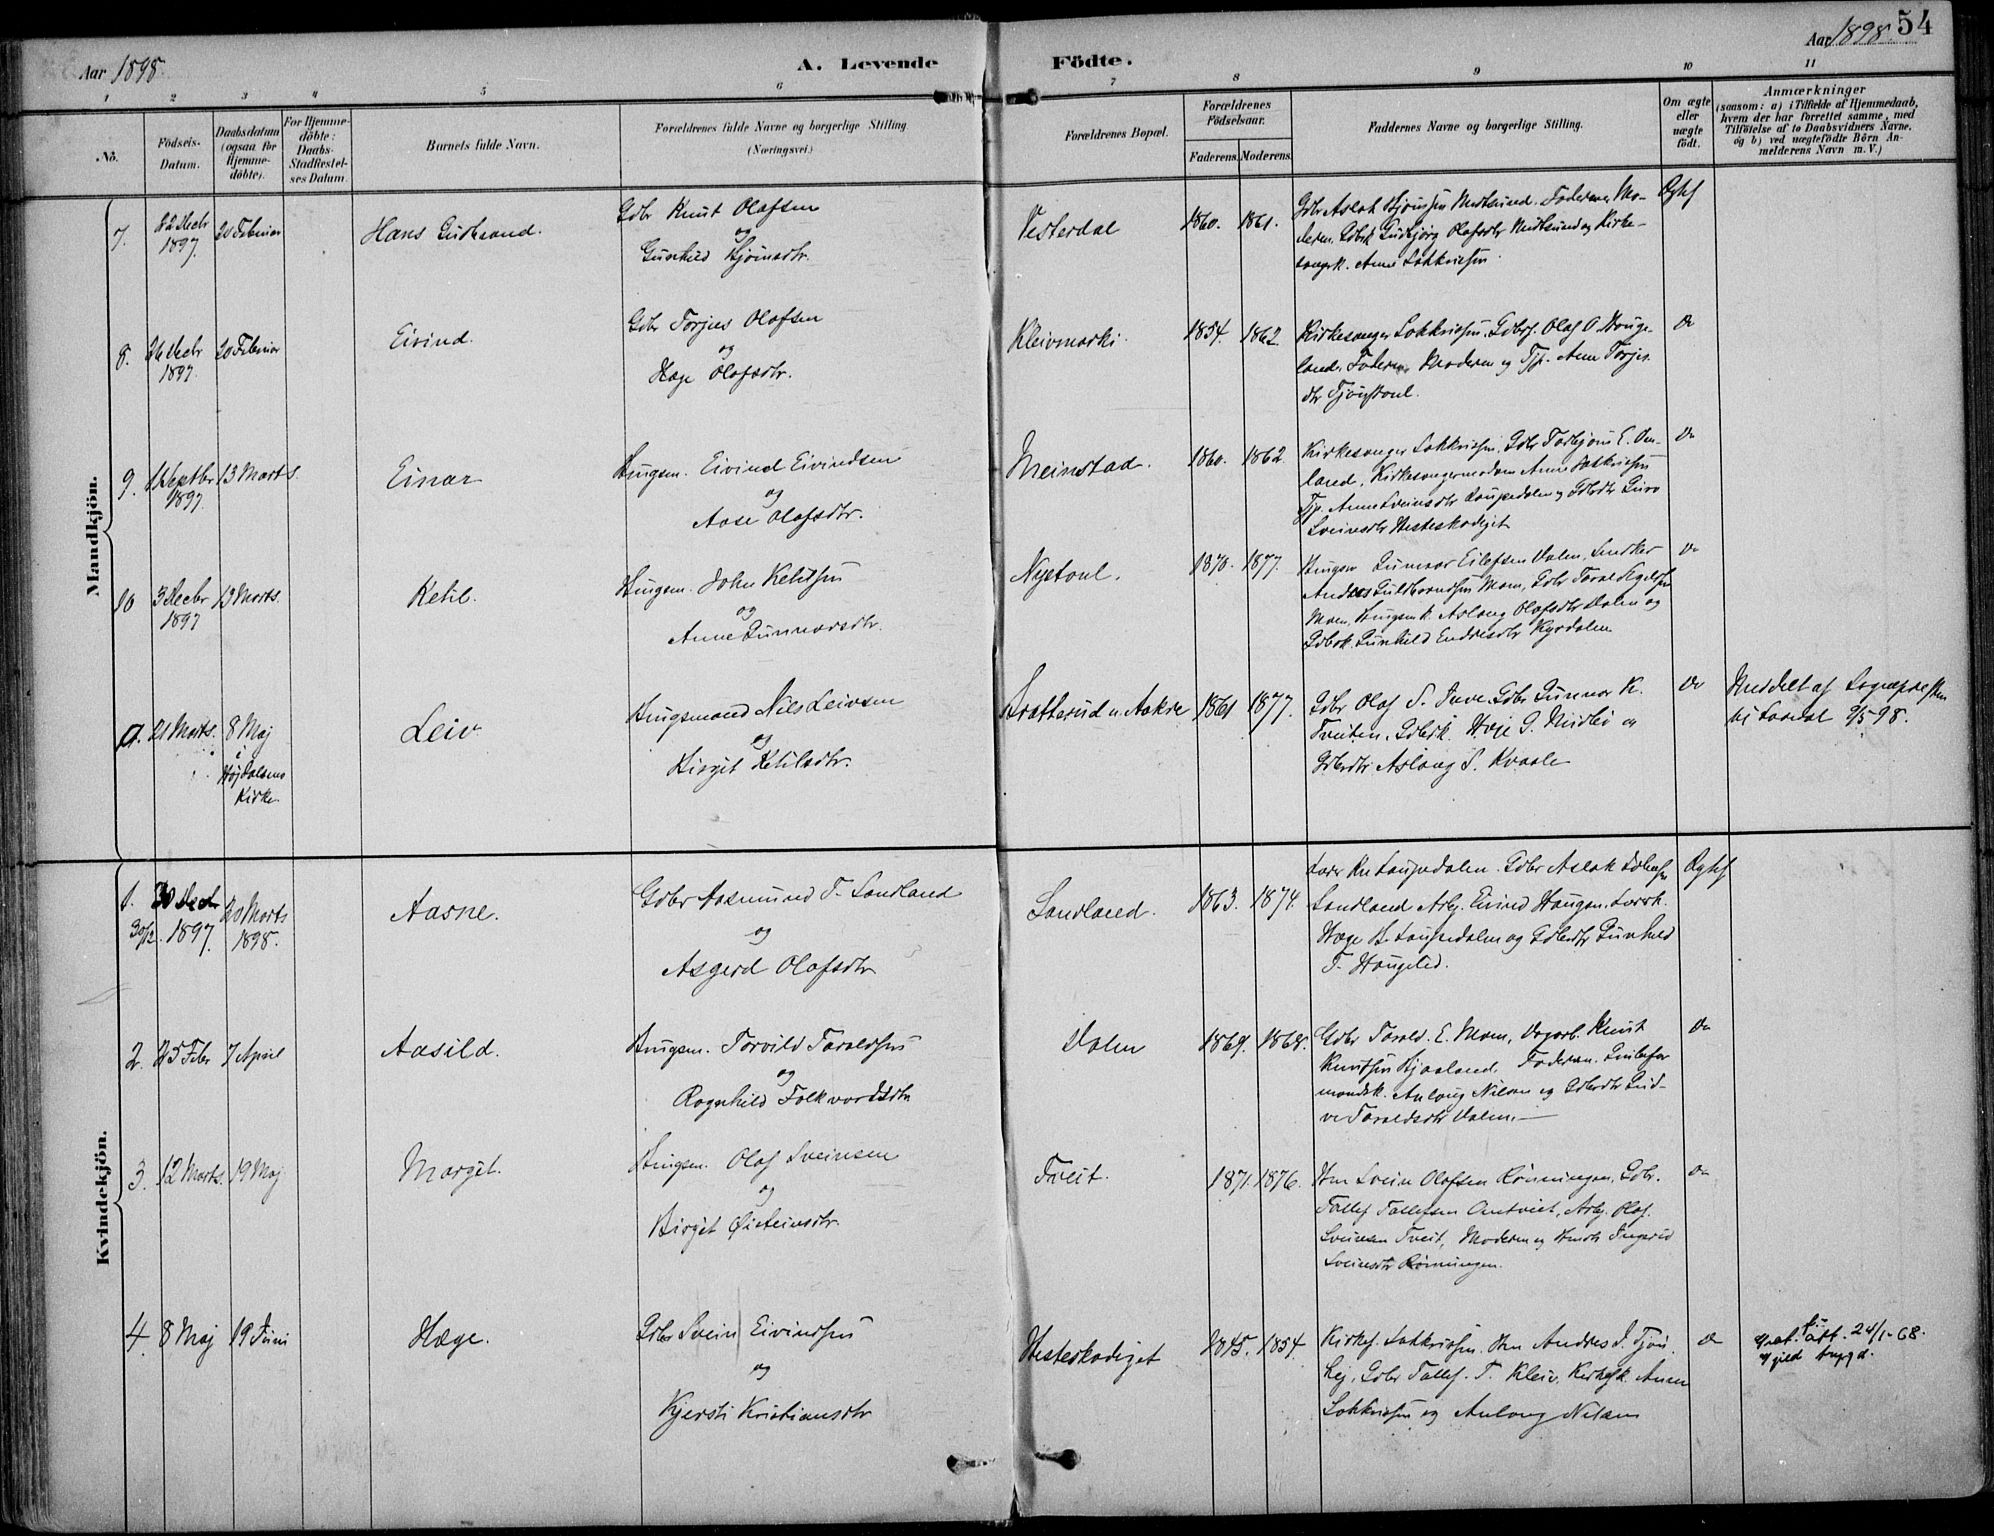 Aar 1898
A. Levende
Födte.
Aar 1898. 54
1 2 3 4 5 6 7 8 9 10 11
No.
Födsels-
Datum.
Daabsdatum
(ogsaa for
Hjemme-
döbte).
For Hjemme-
döbte:
Daabs-
Stadfæstel-
ses Datum.
Barnets fulde Navn.
Forældrenes fulde Navne og borgerlige Stilling
(Næringsvei.)
Forældrenes Bopæl.
Forældrenes
Födselsaar.
Faderens. Moderens.
Faddernes Navne og borgerlige Stilling.
Om ægte
eller
uægte
födt.
Anmærkninger
(saasom: a) i Tilfælde af Hjemmedaab,
hvem der har forrettet samme, med
Tilföielse af to Daabsvidners Navne,
og b) ved uægtefödte Börn An-
melderens Navn m. V.)
Mandkjön.
7. 22 Decbr 1897. 20 Februar Hans Gudbrand.
Gbr Knut Olafsen
og
Gunhild Bjørnsdtr.
Vesterdal 1860. 1861.
Gbr Aslak Bjørnsen Midtsund. Faderen, Mo-
deren, Gbrk Gudbjørg Olafsdtr Midtsund og Kirke-
sangerk. Anne Lokkrisen.
Ægte
8. 26 Decbr 1897. 20 Februar Eivind.
Gbr Torjus Olafsen
og
Hæge Olafsdtr.
Kleivmarki. 1854. 1862
Kirkesanger Lokkrisen, Gbrs. Olaf O. Hauge-
land. Faderen, Moderen og Tjp. Anne Torjus-
dtr
Do
9. 1 Septbr 1897. 13 Marts. Einar
Brugsm. Eivind Eivindsen
og
Aase Olafsdtr.
Meinstad. 1860. 1862.
Kirkesanger Lokkrisen, Gbr Torbjørn E.
land, Kirkesangermadam Anne Lokkrisen
Tjp. Anne Sveinsdtr Laupedalen og Gbrdtr Guro
Sveinsdtr Hesteskodiget
Do
10 3 Decbr 1897 13 Marts. Ketil.
Brugsm. John Ketilsen
og
Anne Gunnarsdtr.
Nystoul. 1870. 1877.
Brugsm Gunnar Eilefsen Dalen, Snedker
Anders Guldbrandsen Moen, Gbr Tarald
Moen, Brugsmk. Aslaug Olafsdtr Dalen og
Gbrk. Gunhild Endresdtr Kyrdalen
Do
11. 21 Marts. 8 Maj
i
Højdalsmo
Kirke.
Leiv
Brugsmand Nils Leivsen
og
Birgit Ketilsdtr.
Bratterud u. Aakre 1861 1877.
Gbr Olaf S. Gunnar K.
Tveiten. Gbrk. Hæge G. Midbø og
Gbrdtr Aslaug S. Kvaale
Do
Meddelt af Sognepresten
til Laardal 9/5 98.
Kvindekjön.
1. 30 Decbr
30/12. 1897. 20 Marts 1898. Aasne.
Gbr Aasmund T. Sandland
og
Asgerd Olafsdtr
Sandland. 1863. 1874.
Laupedalen. Gbr Aslak
Sandland Arb. Eivind Haugen.
Hæge B. Laupedalen og Gbrdtr Gunhild
T. Haugelid.
Ægte
2. 25 Febr 7 April Aasild.
Brugsm. Torvild Taraldsen
og
Ragnhild Folkvordsdtr
Dalen 1869. 1868.
Gbr Tarald. E. Moen, Dagarb. Knut
Knutsen Bjaaland. Faderen.
Anlaug Nilsen og Gbrdtr Gud-
ve Taraldsdtr Dalen.—
Do
3. 12 Marts. 19 Maj Margit.
Brugsm. Olaf Sveinsen
og
Birgit Øisteinsdtr.
Tveit. 1871. 1876.
Hm Svein Olafsen Rønningen, Gbr.
Tallef Tallefsen Omtveit, Arb. Olaf
Sveinsen Tveit, Moderen og Ingerid
Sveinsdtr Rønningen.
Do
4. 8 Maj 19 Juni Hæge.
Gbr Svein Eivindsen
og
Kjersti Kristiansdtr
Hesteskodiget 1845. 1854.
Kirkes. Lokkrisen. Hm Andres J. Tjøn-
hej, Gbr Tallef. T. Kleiv. Kirkesk. Anne
Lokkrisen og Anlaug Nilsen
Do
att. 24/1-68.
trygd.